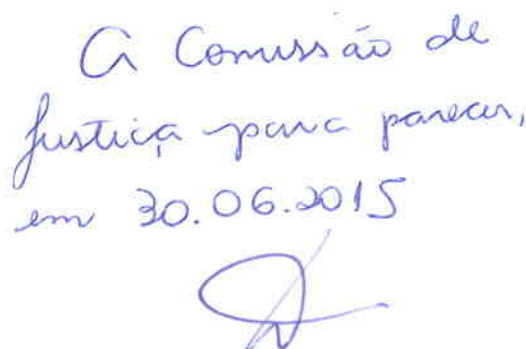 A Comissão de
Justiça para parecer,
em 30.06.2015